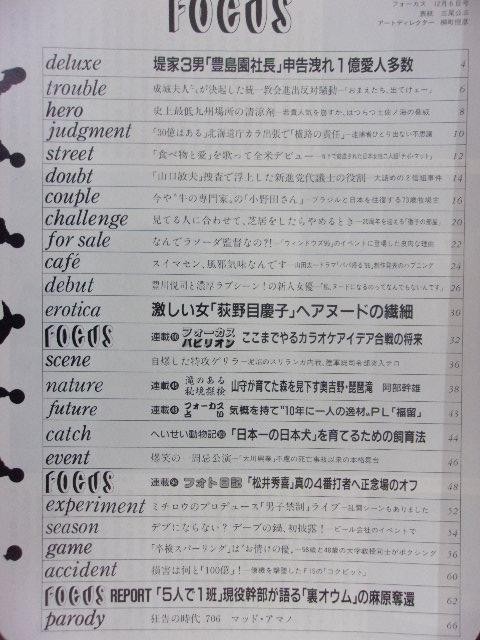 FOCUS
フォーカス 12月6日号
表紙 三尾公三
アートディレクター 柳町恒彦
deluxe 堤家3男「豊島園社長」申告洩れ1億愛人多数 4
trouble 成城夫人が決起した統一教会進出反対騒動―「おまえたち、出てけェー」 6
hero 史上最低九州場所の清涼剤―若貴人気を脅すか、はつらつ土佐ノ海の脅威 8
judgment 「30億はある」北海道庁カラ出張で「横路の責任」―逮捕者ひとり出ない不思議 10
street 「食べ物と愛」を歌って全米デビュー 12
doubt 「山口敏夫」捜査で浮上した新進党代議士の役割―大詰めの2信組事件 14
couple 今や“牛の専門家”の「小野田さん」―ブラジルと日本を往復する73歳牧場主 16
challenge 見てる人に合わせて、芝居をしたらやめるとき―20周年を迎える「徹子の部屋」 20
for sale なんでラソーダ監督なの?!―「ウィンドウズ95」のイベントに登場した庶民的な理由 22
café スイマセン、風邪気味なんです―山田太一ドラマ「パパ帰る'96」制作発表のハプニング 24
debut 豊川悦司と濃厚ラブシーン!の新人女優―「私、ヌードになるのってなんでもないんです」 26
erotica 激しい女「荻野目慶子」ヘアヌードの繊細 30
FOCUS 連載 フォーカスパビリオン ここまでやるカラオケアイデア合戦の将来 32
scene 自爆した特攻ゲリラ―泥沼のスリランカ内戦、陸軍総司令部突入テロ 36
nature 連載 滝のある秘境探検 山守が育てた森を見下す奥吉野・琵琶滝 阿部幹雄 38
future 連載 フォーカス10 気概を持て“10年に一人の逸材”PL「福留」 43
catch へいせい動物記 「日本一の日本犬」を育てるための飼育法 44
event 爆笑の一周忌公演―「大川興業」不慮の死亡事故以来の本格舞台 46
FOCUS 連載 フォト日記 「松井秀喜」真の4番打者へ正念場のオフ 48
experiment ミチロウのプロデュース「男子禁制」ライブ―乱闘シーンもありました 52
season デブにならない?デーブの鍋、初披露!―ビール会社のイベントで 54
game 「卒検スパーリング」は“お情けの優”。―58歳と48歳の大学教授同士がボクシング 56
accident 損害は何と「100億」!―僚機を撃墜したF15の「コクピット」 60
FOCUS REPORT 「5人で1班」現役幹部が語る「裏オウム」の麻原奪還 62
parody 狂告の時代 706 マッド・アマノ 66